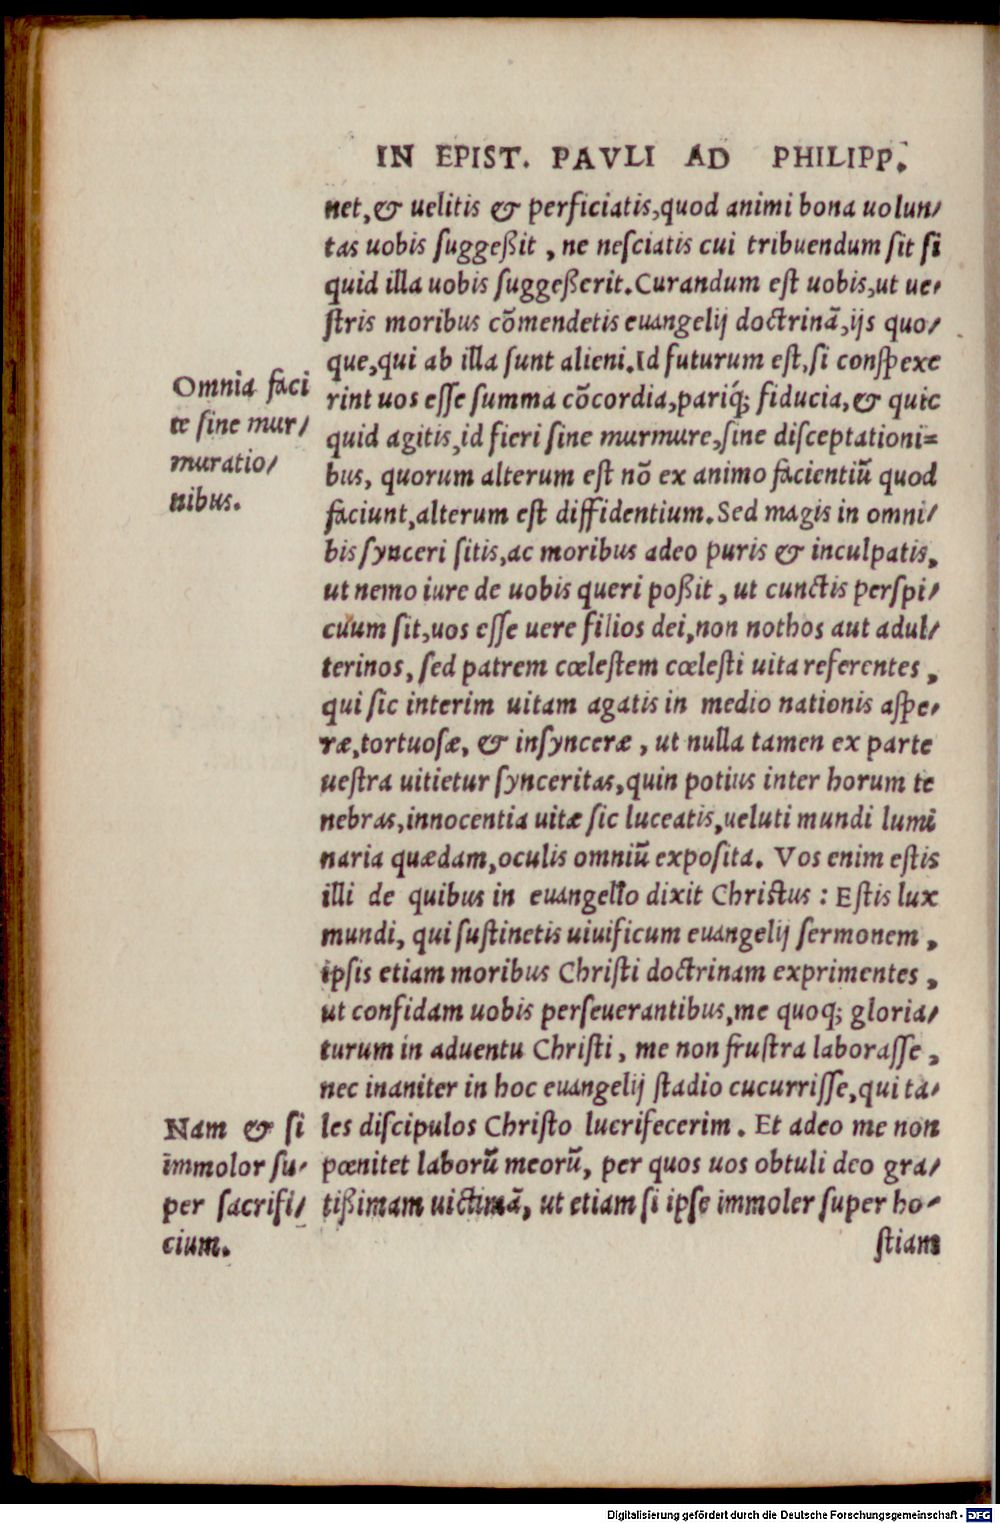 IN EPIST. PAVLI AD PHILIPP.
net, & uelitis & perficiatis, quod animi bona uolun/
tas uobis suggeßit, ne nesciatis cui tribuendum sit si
quid illa uobis suggeßerit. Curandum est uobis, ut ue/
stris moribus cōmendetis euangelij doctrinā, ijs quo/
que, qui ab illa sunt alieni. Id futurum est, si conspexe
Omnia faci
te sine mur/
muratio/
nibus.
rint uos esse summa cōcordia, pariq́; fiducia, & quic
quid agitis, id fieri sine murmure, sine disceptationi=
bus, quorum alterum est nō ex animo facientiū quod
faciunt, alterum est diffidentium. Sed magis in omni/
bis synceri sitis, ac moribus adeo puris & inculpatis,
ut nemo iure de uobis queri poßit, ut cunctis perspi/
cuum sit, uos esse uere filios dei, non nothos aut adul/
terinos, sed patrem cœlestem cœlesti uita referentes,
qui sic interim uitam agatis in medio nationis aspe/
ræ, tortuosæ, & insynceræ, ut nulla tamen ex parte
uestra uitietur synceritas, quin potius inter horum te
nebras, innocentia uitæ sic luceatis, ueluti mundi lumi
naria quædam, oculis omniū exposita. Vos enim estis
illi de quibus in euangelio dixit Christus: Estis lux
mundi, qui sustinetis uiuificum euangelij sermonem,
ipsis etiam moribus Christi doctrinam exprimentes,
ut confidam uobis perseuerantibus, me quoq; gloria/
turum in aduentu Christi, me non frustra laborasse,
nec inaniter in hoc euangelij stadio cucurrisse, qui ta/
Nam & si
immolor su/
per sacrifi/
cium.
les discipulos Christo lucrifecerim. Et adeo me non
pœnitet laborū meorū, per quos uos obtuli deo gra/
tißimam uictimā, ut etiam si ipse immoler super ho/
stiam
Digitalisierung gefördert durch die Deutsche Forschungsgemeinschaft - DFG